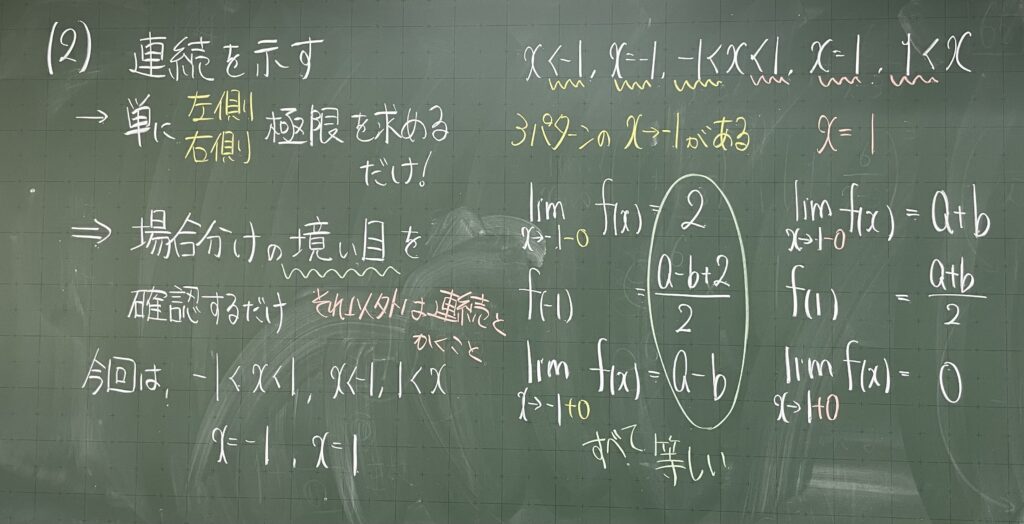 (2) 連続を示す
→ 単に 左側 右側 極限を求める
だけ!
⇒ 場合分けの境い目を
確認するだけ それ以外は連続と
かくこと
今回は, -1<x<1, x<-1, 1<x
x=-1, x=1
x<-1, x=-1, -1<x<1, x=1, 1<x
3パターンの x→-1がある
x=1
lim f(x) = 2
x→-1-0
f(-1) = (a-b+2)/2
lim f(x) = a-b
x→-1+0
すべて等しい
lim f(x) = a+b
x→1-0
f(1) = (a+b)/2
lim f(x) = 0
x→1+0